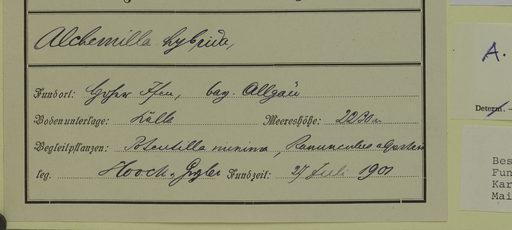 Alchemilla hybrida,
Fundort: Hoher Ifen, bay. Allgäu
Bodenunterlage: Kalk Meereshöhe: 2230m
Begleitpflanzen: Potentilla minima, Ranunculus alpestris
leg. Hoock Fundzeit: 27 Juli 1901
A.
Determ.
Bes
Fun
Kar
Mai